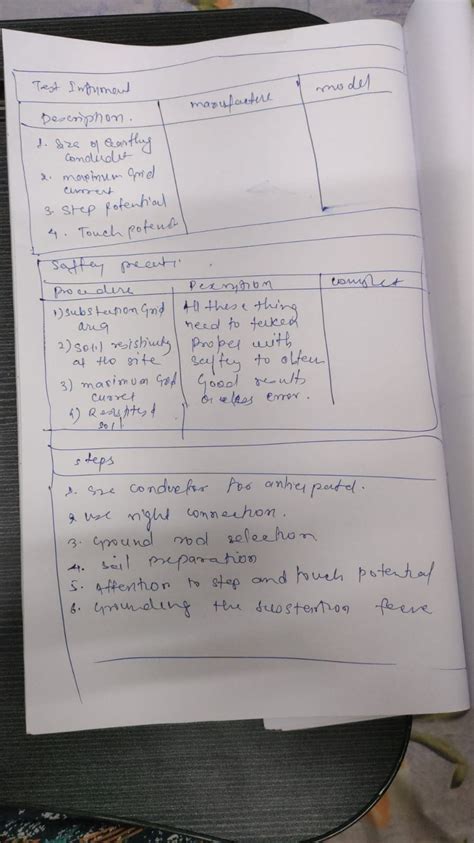 Test Instrument
manufacture
model
Description.
1. Size of Earthing
conductor
2. maximum Grid
current
3. Step potential
4. Touch potential
Saftey precuti.
Procedure
Description
complet
1) Substation Grid
area
2) Soil resistivity
at the site
3) maximum Grid
curret
4)
soil
All these thing
need to taken
proper with
saftey to obten
Good results
or less error.
steps
1. Size conductor for anticipated.
2. use right connection.
3. Ground rod selection
4. Soil preparation
5. Attention to step and touch potential
6. Grounding the substention fence